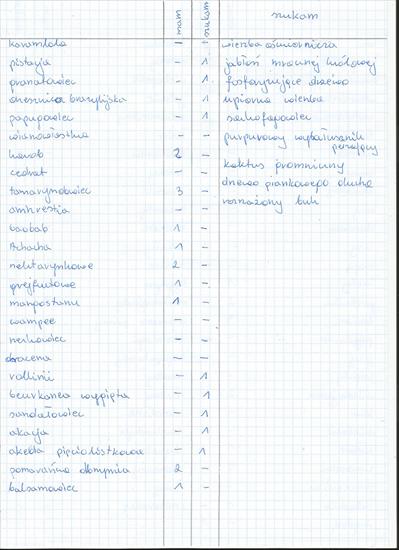 mam szukam szukam
karambola - - wierzba ośmiornicza
pistacja - 1 jabłoń mrocznej królowej
granatowiec - 1 fosforyzujące drzewo
orzesznica brazylijska - 1 upiorna wierzba
papugowiec - 1 sarkofagowiec
wianowłostka - - purpurowy wybałusznik
pożerający
karob 2 - kaktus promienny
cedrat - - drzewo piankowego ducha
tamaryndowiec 3 - rozmnażony buk
amherstia - -
baobab 1 -
Achacha 1 -
nektarynkowe 2 -
grejfrutowe 1 -
mangostanu 1 -
wampee - -
nerkowiec - -
dracena - -
rollinii - 1
beurkanea wygięta - 1
sandałowiec - 1
akacja - 1
akebia pięciolistkowa - 1
pomarańcza olbrzymia 2 -
balsamowiec 1 -